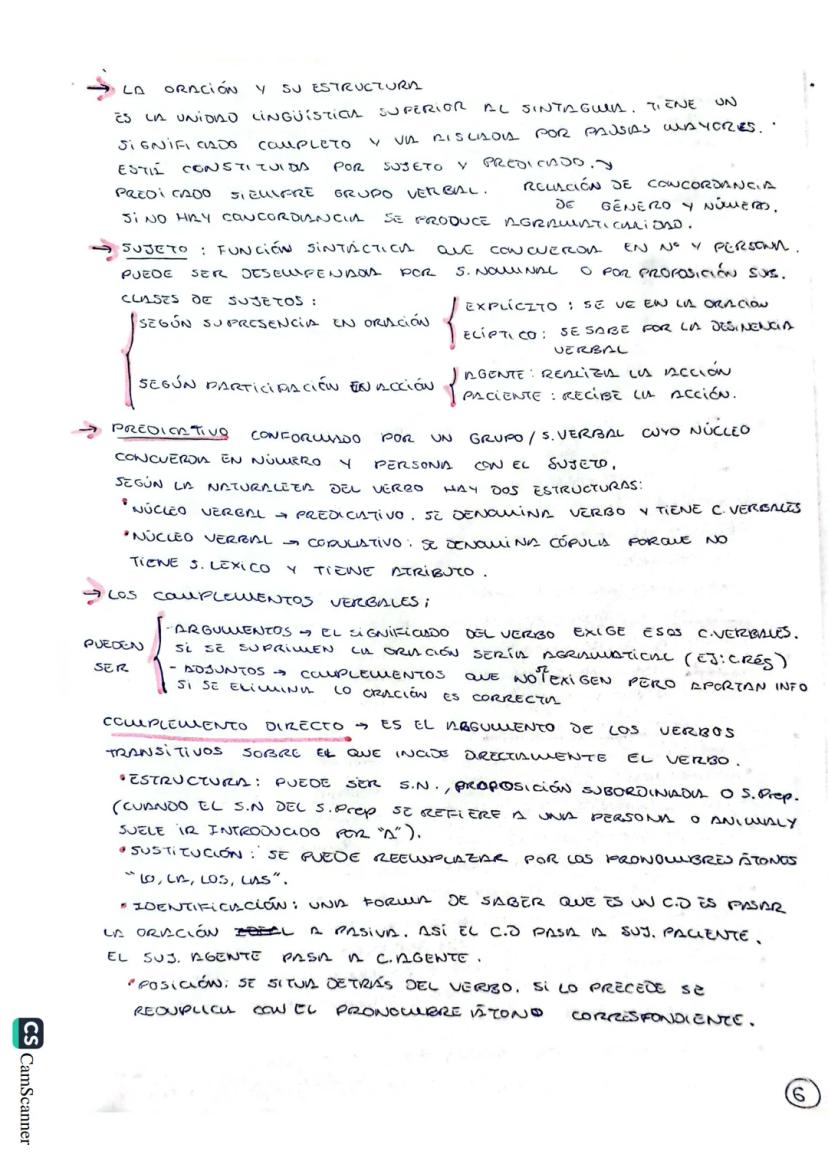 → LA ORACIÓN Y SU ESTRUCTURA
ES LA UNIDAD LINGÜÍSTICA SUPERIOR AL SINTAGMA. TIENE UN
SIGNIFICADO COMPLETO Y VA AISLADA POR PAUSAS MAYORES.
ESTÁ CONSTITUIDA POR SUJETO Y PREDICADO. Y
PREDICADO SIEMPRE GRUPO VERBAL. RELACIÓN DE CONCORDANCIA
DE GÉNERO Y NÚMERO.
SI NO HAY CONCORDANCIA SE PRODUCE AGRAMATICALIDAD.
→ SUJETO : FUNCIÓN SINTÁCTICA QUE CONCUERDA EN Nº Y PERSONA.
PUEDE SER DESEMPEÑADA POR S. NOMINAL O POR PROPOSICIÓN SUB.
CLASES DE SUJETOS :
SEGÚN SU PRESENCIA EN ORACIÓN
EXPLÍCITO : SE VE EN LA ORACIÓN
ELÍPTICO : SE SABE POR LA DESINENCIA
VERBAL
SEGÚN PARTICIPACIÓN EN ACCIÓN
AGENTE : REALIZA LA ACCIÓN
PACIENTE : RECIBE LA ACCIÓN.
→ PREDICATIVO CONFORMADO POR UN GRUPO / S. VERBAL CUYO NÚCLEO
CONCUERDA EN NÚMERO Y PERSONA CON EL SUJETO.
SEGÚN LA NATURALEZA DEL VERBO HAY DOS ESTRUCTURAS:
• NÚCLEO VERBAL → PREDICATIVO. SE DENOMINA VERBO Y TIENE C. VERBALES
• NÚCLEO VERBAL → COPULATIVO : SE DENOMINA CÓPULA PORQUE NO
TIENE S. LÉXICO Y TIENE ATRIBUTO.
→ LOS COMPLEMENTOS VERBALES ;
PUEDEN
SER
- ARGUMENTOS → EL SIGNIFICADO DEL VERBO EXIGE ESOS C. VERBALES.
SI SE SUPRIMEN LA ORACIÓN SERÍA AGRAMATICAL (EJ: CRÉS)
- ADJUNTOS → COMPLEMENTOS QUE NO SE EXIGEN PERO APORTAN INFO
SI SE ELIMINA LO ORACIÓN ES CORRECTA
COMPLEMENTO DIRECTO → ES EL ARGUMENTO DE LOS VERBOS
TRANSITIVOS SOBRE EL QUE INCIDE DIRECTAMENTE EL VERBO.
• ESTRUCTURA : PUEDE SER S.N., PROPOSICIÓN SUBORDINADA O S. Prep.
(CUANDO EL S.N DEL S. Prep SE REFIERE A UNA PERSONA O ANIMAL Y
SUELE IR INTRODUCIDO POR "A").
• SUSTITUCIÓN : SE PUEDE REEMPLAZAR POR LOS PRONOMBRES ÁTONOS
"LO, LA, LOS, LAS".
• IDENTIFICACIÓN : UNA FORMA DE SABER QUE ES UN C.D ES PASAR
LA ORACIÓN A PASIVA. ASÍ EL C.D PASA A SUJ. PACIENTE.
EL SUJ. AGENTE PASA A C. AGENTE.
• POSICIÓN : SE SITUA DETRÁS DEL VERBO. SI LO PRECEDE SE
REDUPLICA CON EL PRONOMBRE ÁTONO CORRESPONDIENTE.
6
CS CamScanner